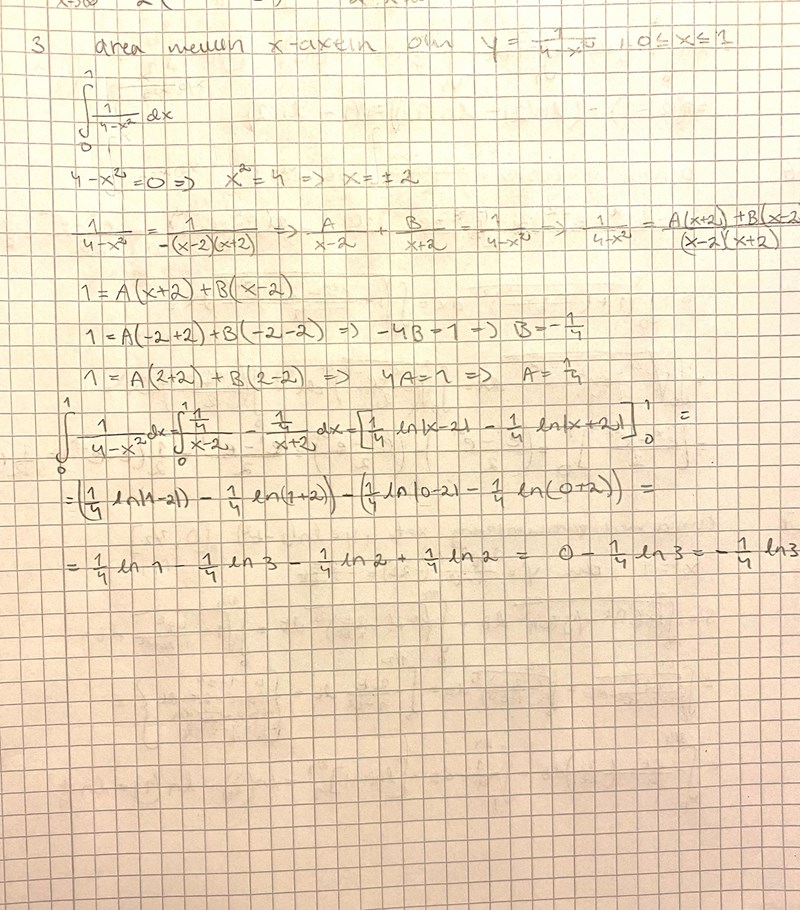 3 area mellan x-axeln och y = 1/(4-x²), 0 ≤ x ≤ 1
∫₀¹ 1/(4-x²) dx
4-x² = 0 => x² = 4 => x = ±2
1/(4-x²) = 1/(-(x-2)(x+2)) => A/(x-2) + B/(x+2) = 1/(4-x²) => 1/(4-x²) = (A(x+2) + B(x-2/((x-2)(x+2)
1 = A(x+2) + B(x-2)
1 = A(-2+2) + B(-2-2) => -4B = 1 => B = -1/4
1 = A(2+2) + B(2-2) => 4A = 1 => A = 1/4
∫₀¹ 1/(4-x²) dx = ∫₀¹ (1/4)/(x-2) - (1/4)/(x+2) dx = [1/4 ln|x-2| - 1/4 ln|x+2|]₀¹ =
= (1/4 ln|1-2|) - 1/4 ln(1+2)) - (1/4 ln|0-2| - 1/4 ln(0+2)) =
= 1/4 ln 1 - 1/4 ln 3 - 1/4 ln 2 + 1/4 ln 2 = 0 - 1/4 ln 3 = -1/4 ln 3